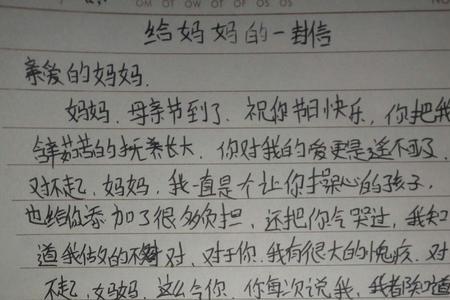 给妈妈的一封信
亲爱的妈妈.
妈妈.母亲节到了.祝你节日快乐,你把我
含辛茹苦的抚养长大.你对我的爱更是遥不可及.
对不起,妈妈,我一直是个让你操心的孩子,
也给你添加了很多负担,还把你气哭过,我知
道我做的不对,对于你.我有很大的愧疚.对
不起,妈妈.这么今你,你每次说我,我都